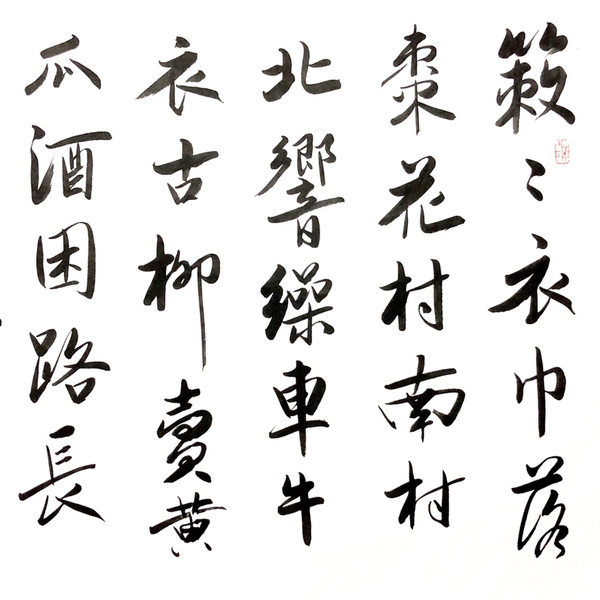 簌〻衣巾落
棗花村南村
北響繰車牛
衣古柳賣黄
瓜酒困路長